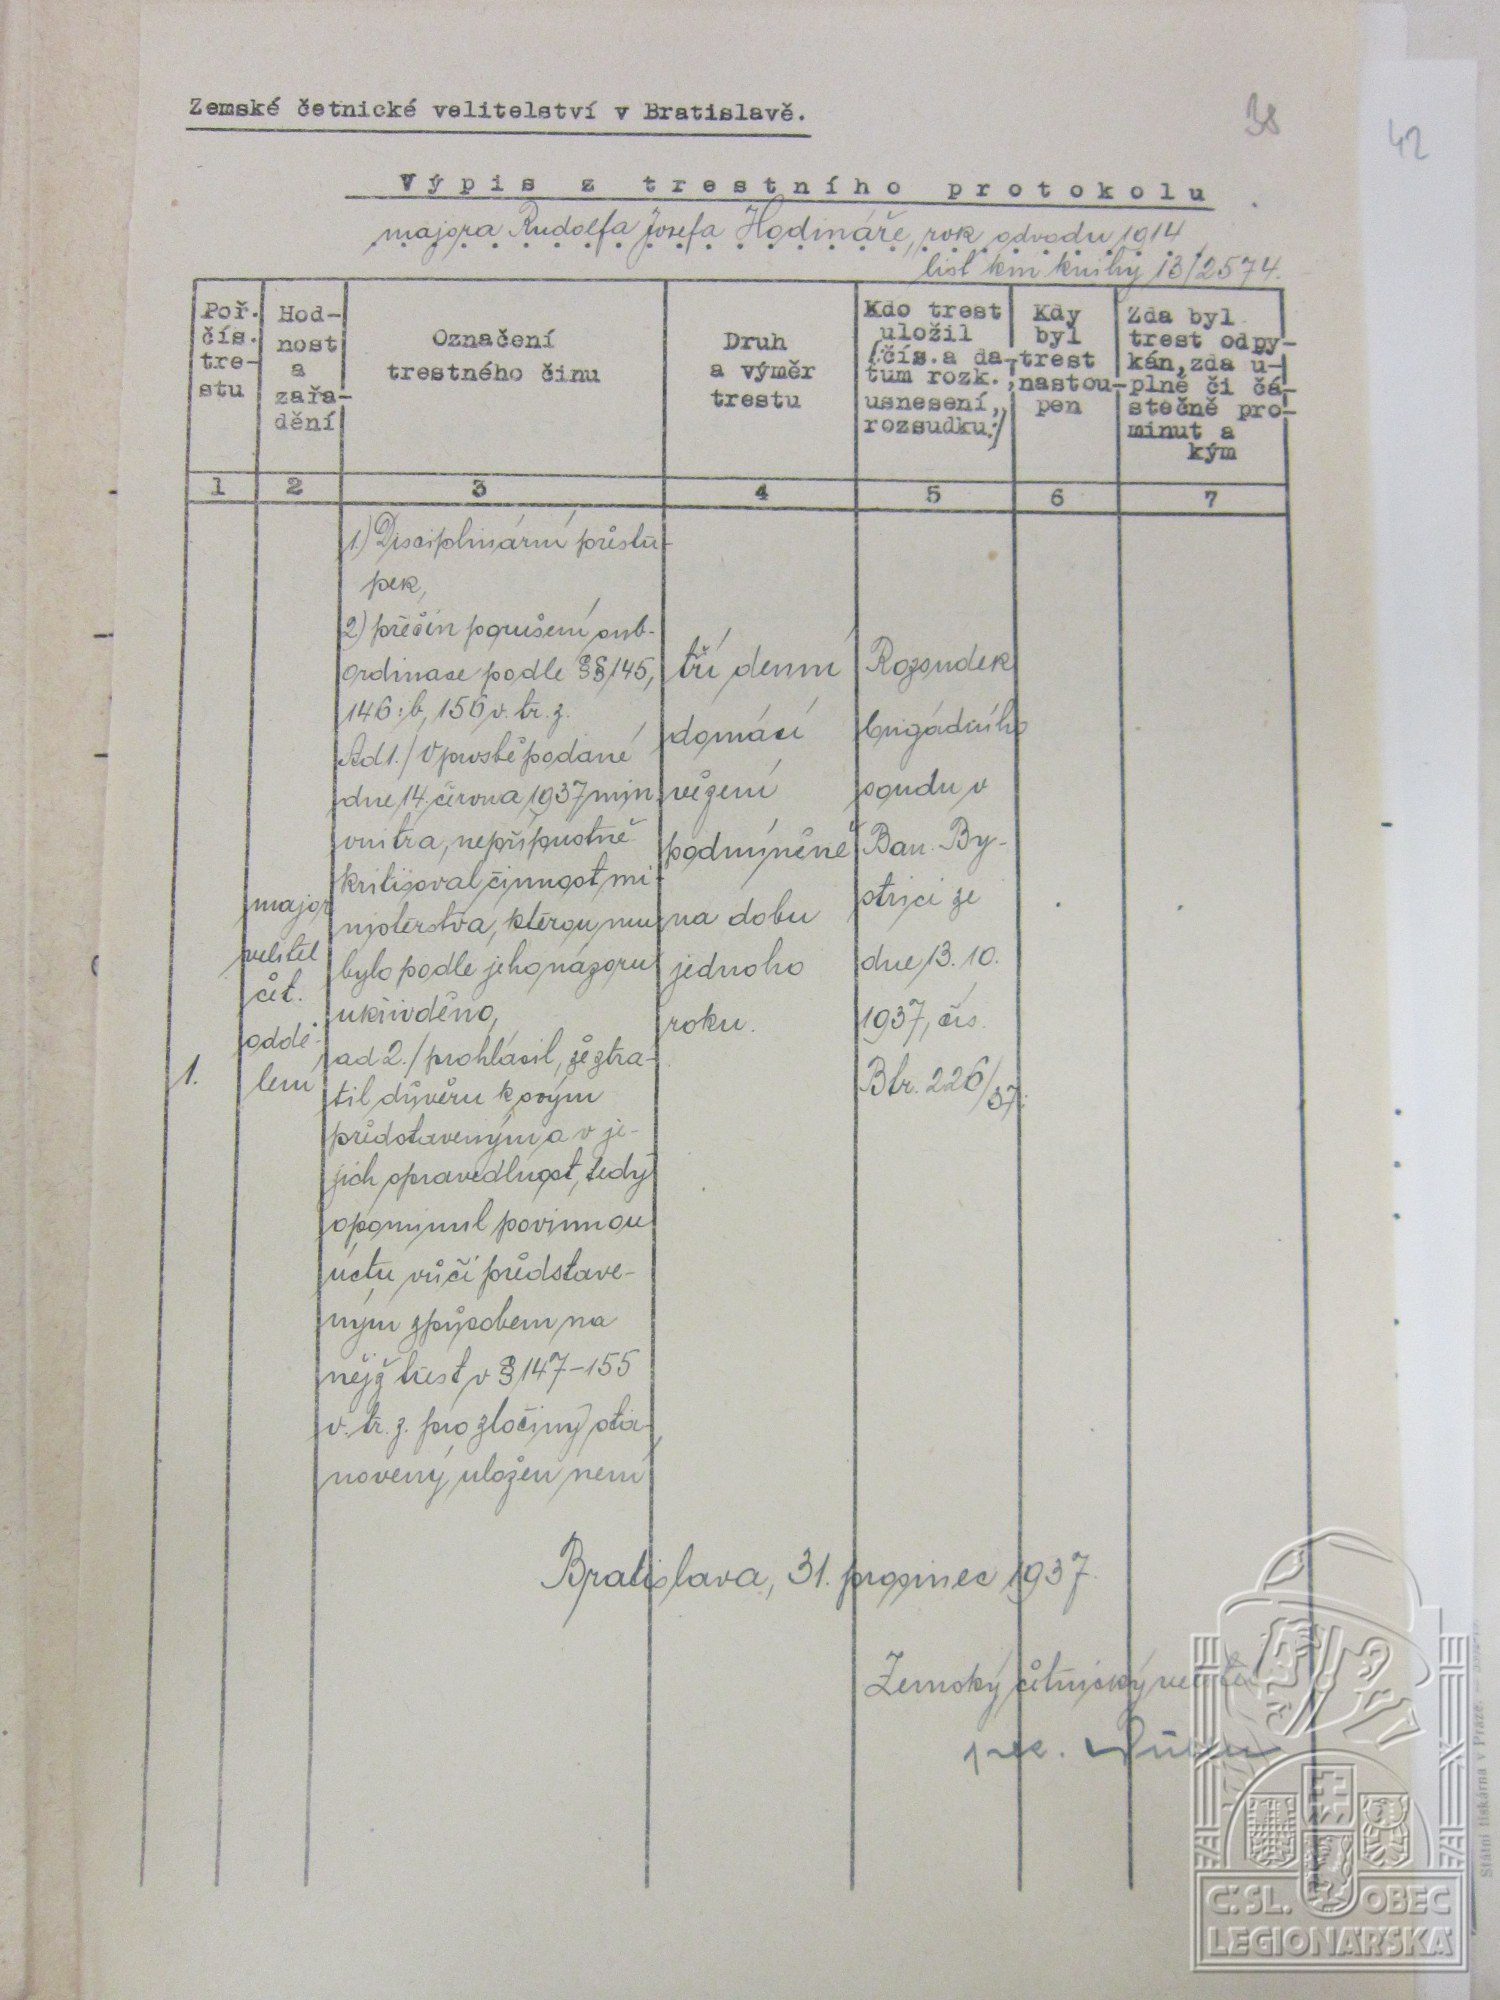 Zemské četnické velitelství v Bratislavě.
38
42
Výpis z trestního protokolu
majora Rudolfa Josefa Hodináře, rok odvodu 1914
list km knihy 13/2574.
Poř.
čís.
tre-
stu
Hod-
nost
a
zařa-
dění
Označení
trestného činu
Druh
a výměr
trestu
Kdo trest
uložil
/:čís. a da-
tum rozk.,
usnesení,
rozsudku:/
Kdy
byl
trest
nastou-
pen
Zda byl
trest odpy-
kán, zda ú-
plně či čá-
stečně pro-
minut a
kým
1 2 3 4 5 6 7
1.
major
velitel
čet.
oddě-
lení
1) Disciplinární přestu-
pek,
2) přečin porušení sub-
ordinace podle §§ 145,
146:b, 156 v. tr. z.
Ad 1./ V prosbě podané
dne 14. června 1937 min
vnitra, nepřípustně
kritisoval činnost mi-
nisterstva, kterou mu
bylo podle jeho názoru
ukřivděno,
ad 2./ prohlásil, že ztra-
til důvěru k svým
představeným a v je-
jich spravedlnost, tedy
opominul povinnou
úctu vůči představe-
ným způsobem na
nějž trest v § 147-155
v. tr. z. pro zločiny sta-
novený uložen není
tří denní
domácí
vězení
podmíněně
na dobu
jednoho
roku.
Rozsudek
brigádního
soudu v
Ban. By-
strici ze
dne 13. 10.
1937, čís.
Btr. 226/37.
Bratislava, 31. prosinec 1937.
Zemský četnický velitel
Státní tiskárna v Praze.
Č.SL. OBEC
LEGIONÁŘSKÁ